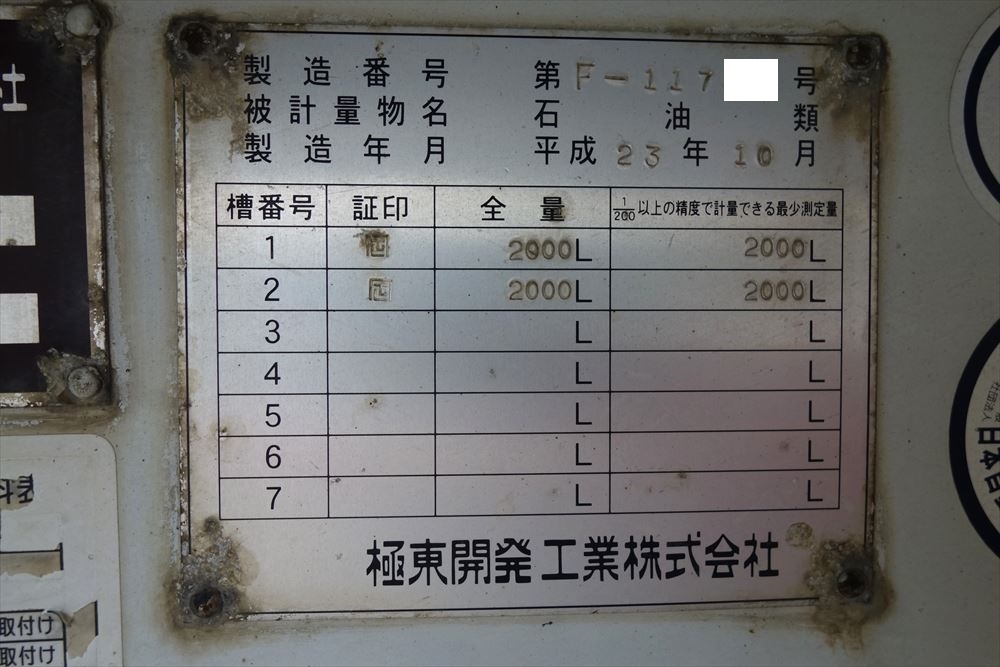 製造番号 第F-117 号
被計量物名 石油類
製造年月 平成23年10月
槽番号 証印 全量 1/200以上の精度で計量できる最少測定量
1 2000L 2000L
2 2000L 2000L
3 L L
4 L L
5 L L
6 L L
7 L L
極東開発工業株式会社
社
取付け
取付け